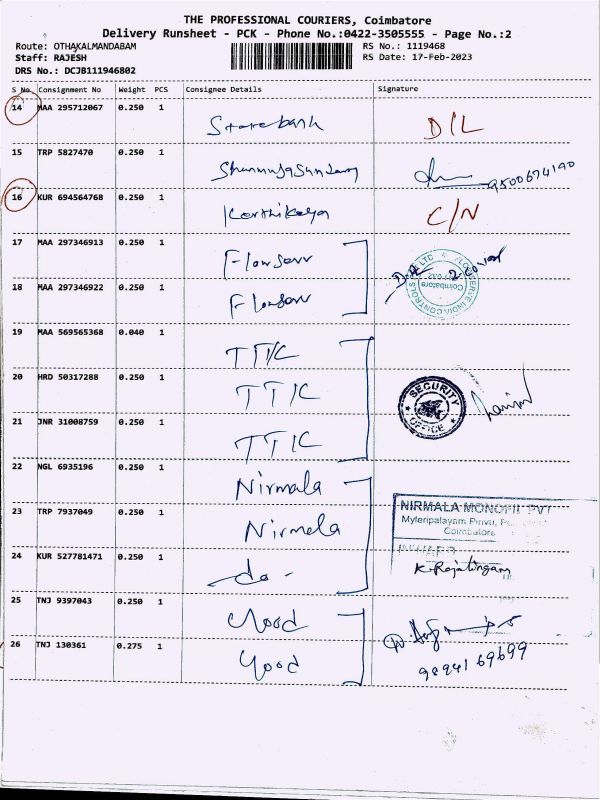 THE PROFESSIONAL COURIERS, Coimbatore
Delivery Runsheet - PCK - Phone No.:0422-3505555 - Page No.:2
Route: OTHAKALMANDABAM
RS No.: 1119468
Staff: RAJESH
RS Date: 17-Feb-2023
DRS No.: DCJB111946802
S No. Consignment No Weight PCS Consignee Details Signature
14 MAA 295712067 0.250 1 D/L
15 TRP 5827470 0.250 1 9500674190
16 KUR 694564768 0.250 1 Karthikeya C/N
17 MAA 297346913 0.250 1 Flowserv
18 MAA 297346922 0.250 1 Flowserv
FLOWSERVE INDIA CONTROLS
Coimbatore
19 MAA 569565368 0.040 1 TTIC
20 HRD 50317288 0.250 1 TTIC
SECURITY
OFFICE
21 JNR 31008759 0.250 1 TTIC
22 NGL 6935196 0.250 1 Nirmala
23 TRP 7937049 0.250 1 Nirmela
NIRMALA MONOFIL PVT
Myleripalayam Pirivu,
Coimbatore
24 KUR 527781471 0.250 1 -do-
K. Rajalingam
25 TNJ 9397043 0.250 1
26 TNJ 130361 0.275 1 Good
9894169699